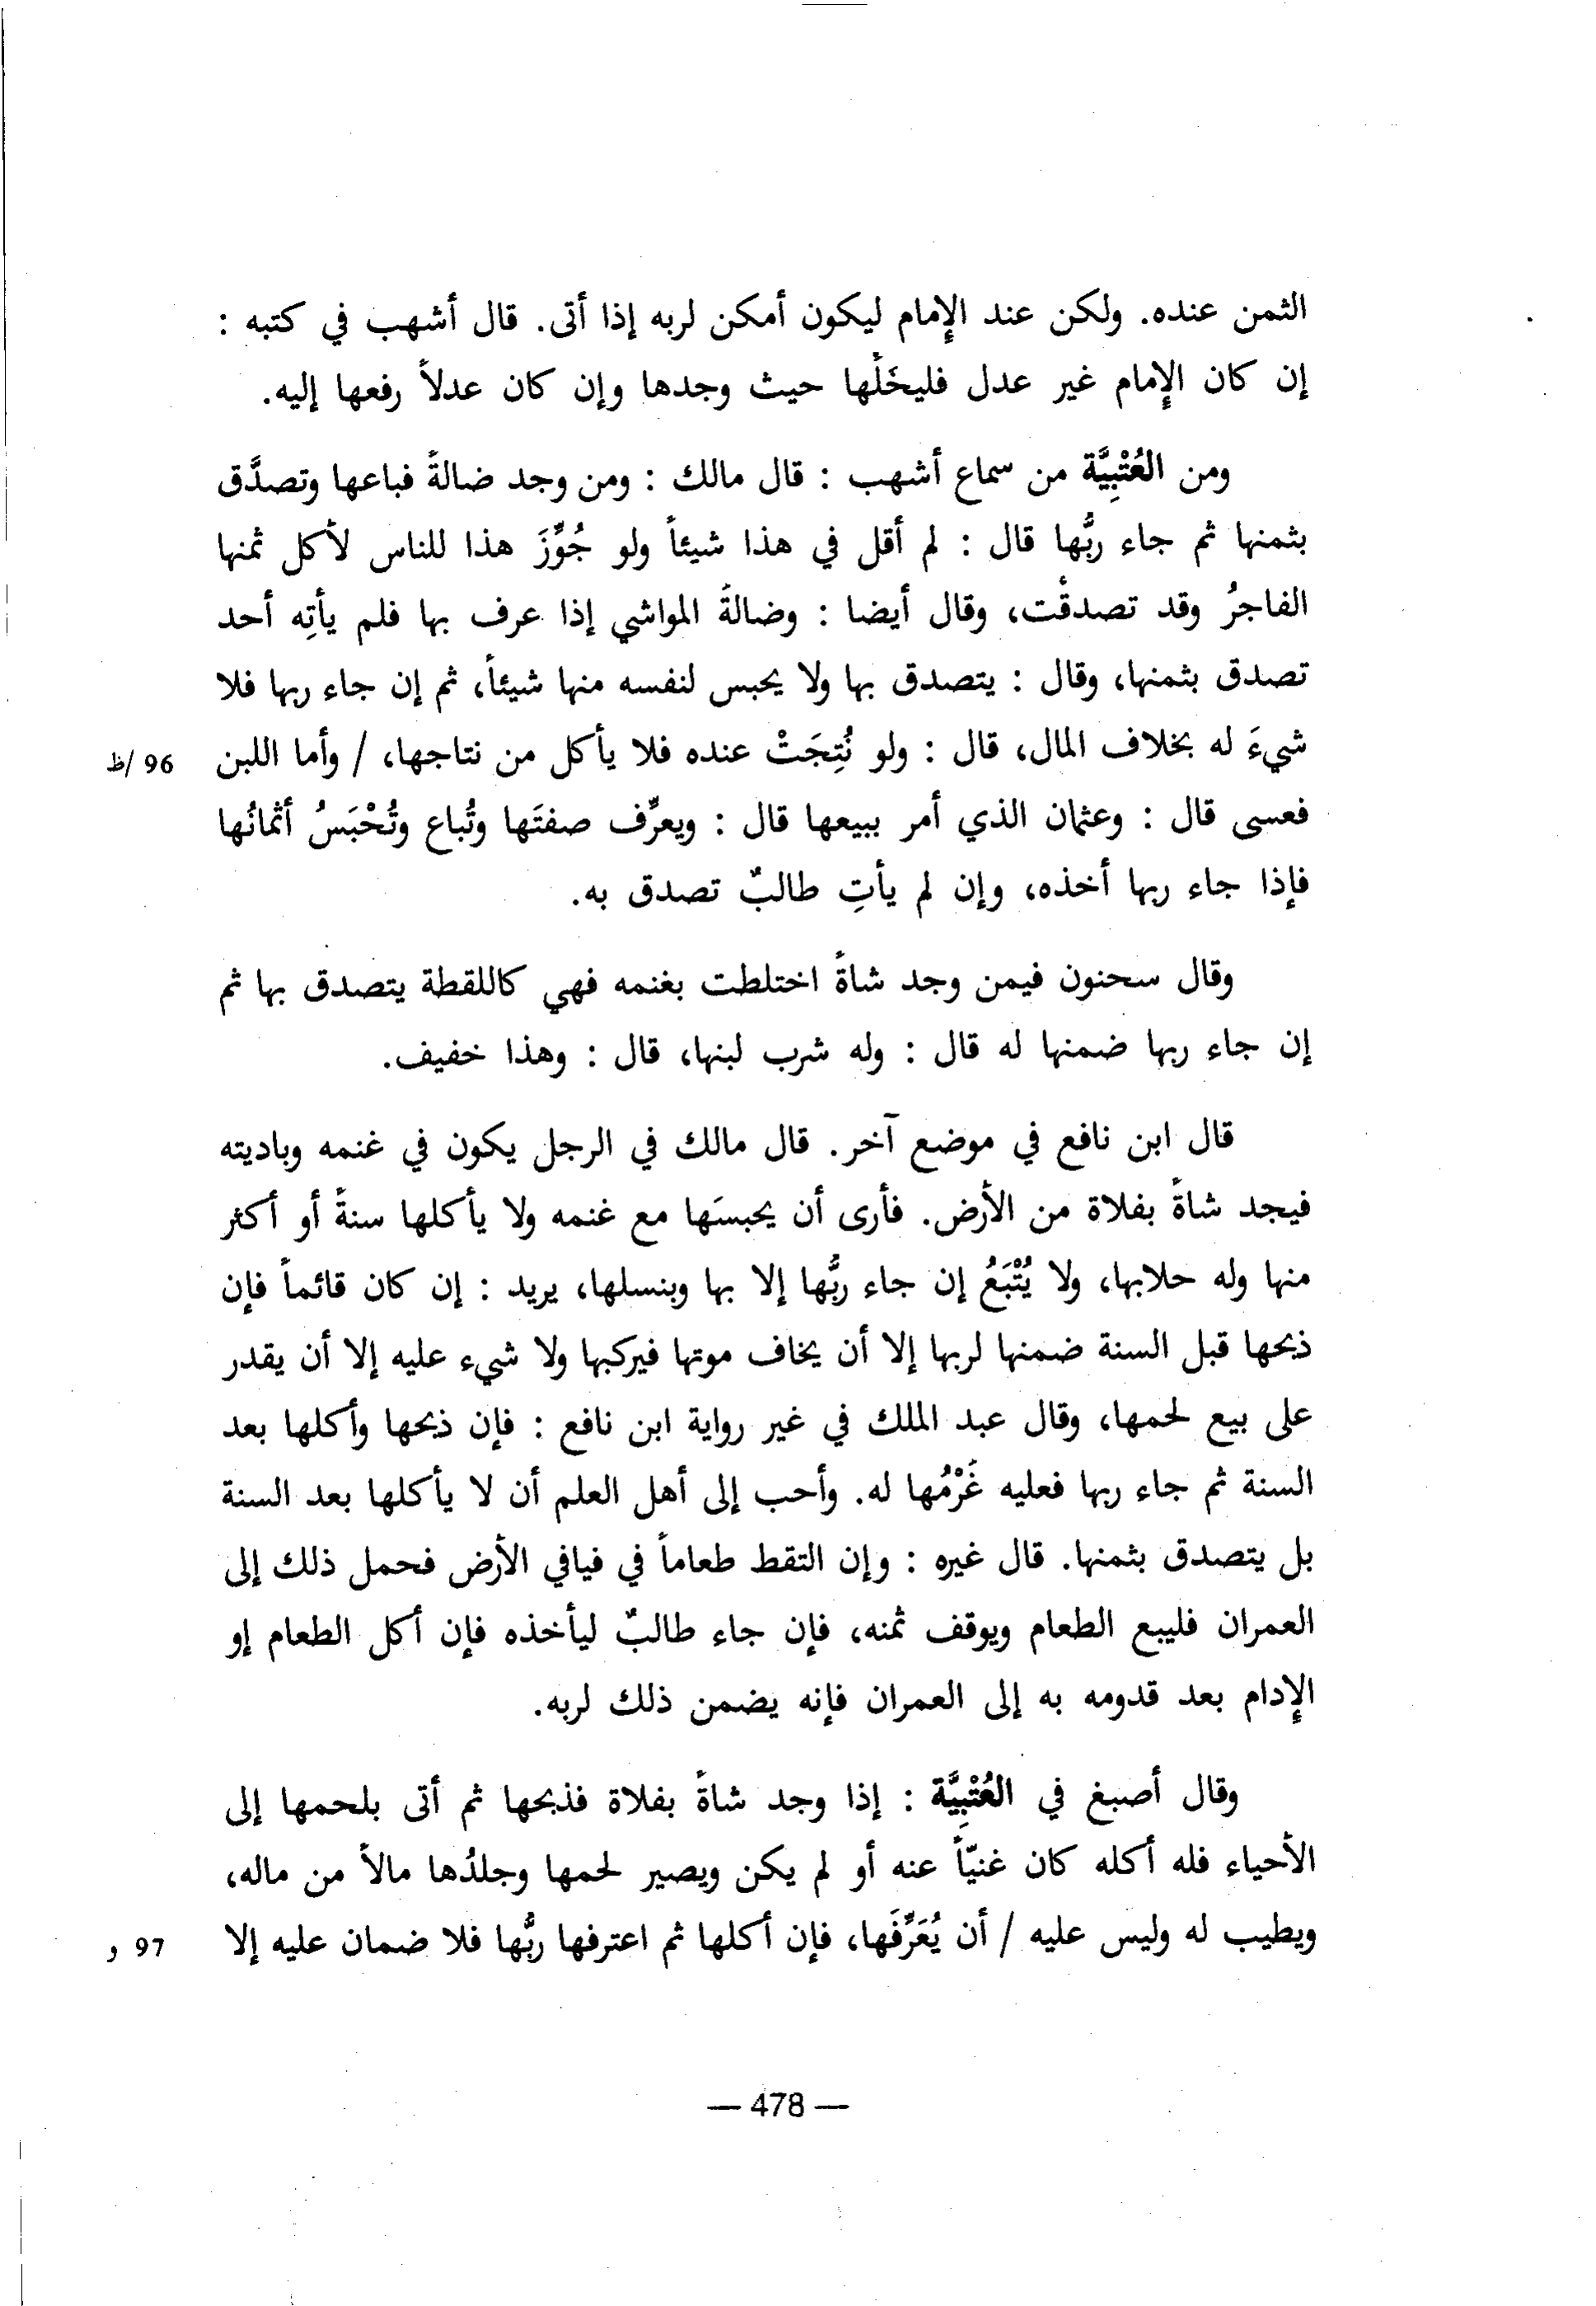 الثمن عنده. ولكن عند الإمام ليكون أمكن لربه إذا أتى. قال أشهب في كتبه :
إن كان الإمام غير عدل فليخَلِّها حيث وجدها وإن كان عدلاً رفعها إليه.
ومن العُتْبِيَّة من سماع أشهب : قال مالك : ومن وجد ضالةً فباعها وتصدَّق
بثمنها ثم جاء ربُّها قال : لم أقل في هذا شيئاً ولو جُوِّزَ هذا للناس لأكل ثمنها
الفاجرُ وقد تصدقْت، وقال أيضا : وضالةُ المواشي إذا عرف بها فلم يأتِه أحد
تصدق بثمنها، وقال : يتصدق بها ولا يحبس لنفسه منها شيئاً، ثم إن جاء ربها فلا
شيءَ له بخلاف المال، قال : ولو نُتِجَتْ عنده فلا يأكل من نتاجها، / وأما اللبن 96 /ظ
فعسى قال : وعثمان الذي أمر ببيعها قال : ويعرِّف صفتَها وتُباع وتُحْبَسُ أثمانُها
فإذا جاء ربها أخذه، وإن لم يأتِ طالبٌ تصدق به.
وقال سحنون فيمن وجد شاةً اختلطت بغنمه فهي كاللقطة يتصدق بها ثم
إن جاء ربها ضمنها له قال : وله شرب لبنها، قال : وهذا خفيف.
قال ابن نافع في موضع آخر. قال مالك في الرجل يكون في غنمه وباديته
فيجد شاةً بفلاة من الأرض. فأرى أن يحبسَها مع غنمه ولا يأكلها سنةً أو أكثر
منها وله حلابها، ولا يُتْبَعُ إن جاء ربُّها إلا بها وبنسلها، يريد : إن كان قائماً فإن
ذبحها قبل السنة ضمنها لربها إلا أن يخاف موتها فيركبها ولا شيء عليه إلا أن يقدر
على بيع لحمها، وقال عبد الملك في غير رواية ابن نافع : فإن ذبحها وأكلها بعد
السنة ثم جاء ربها فعليه غَرْمُها له. وأحب إلى أهل العلم أن لا يأكلها بعد السنة
بل يتصدق بثمنها. قال غيره : وإن التقط طعاماً في فيافي الأرض فحمل ذلك إلى
العمران فليبع الطعام ويوقف ثمنه، فإن جاء طالبٌ ليأخذه فإن أكل الطعام إو
الإدام بعد قدومه به إلى العمران فإنه يضمن ذلك لربه.
وقال أصبغ في العُتْبِيَّة : إذا وجد شاةً بفلاة فذبحها ثم أتى بلحمها إلى
الأحياء فله أكله كان غنيّاً عنه أو لم يكن ويصير لحمها وجلدُها مالاً من ماله،
ويطيب له وليس عليه / أن يُعَرِّفَها، فإن أكلها ثم اعترفها ربُّها فلا ضمان عليه إلا 97 و
— 478 —